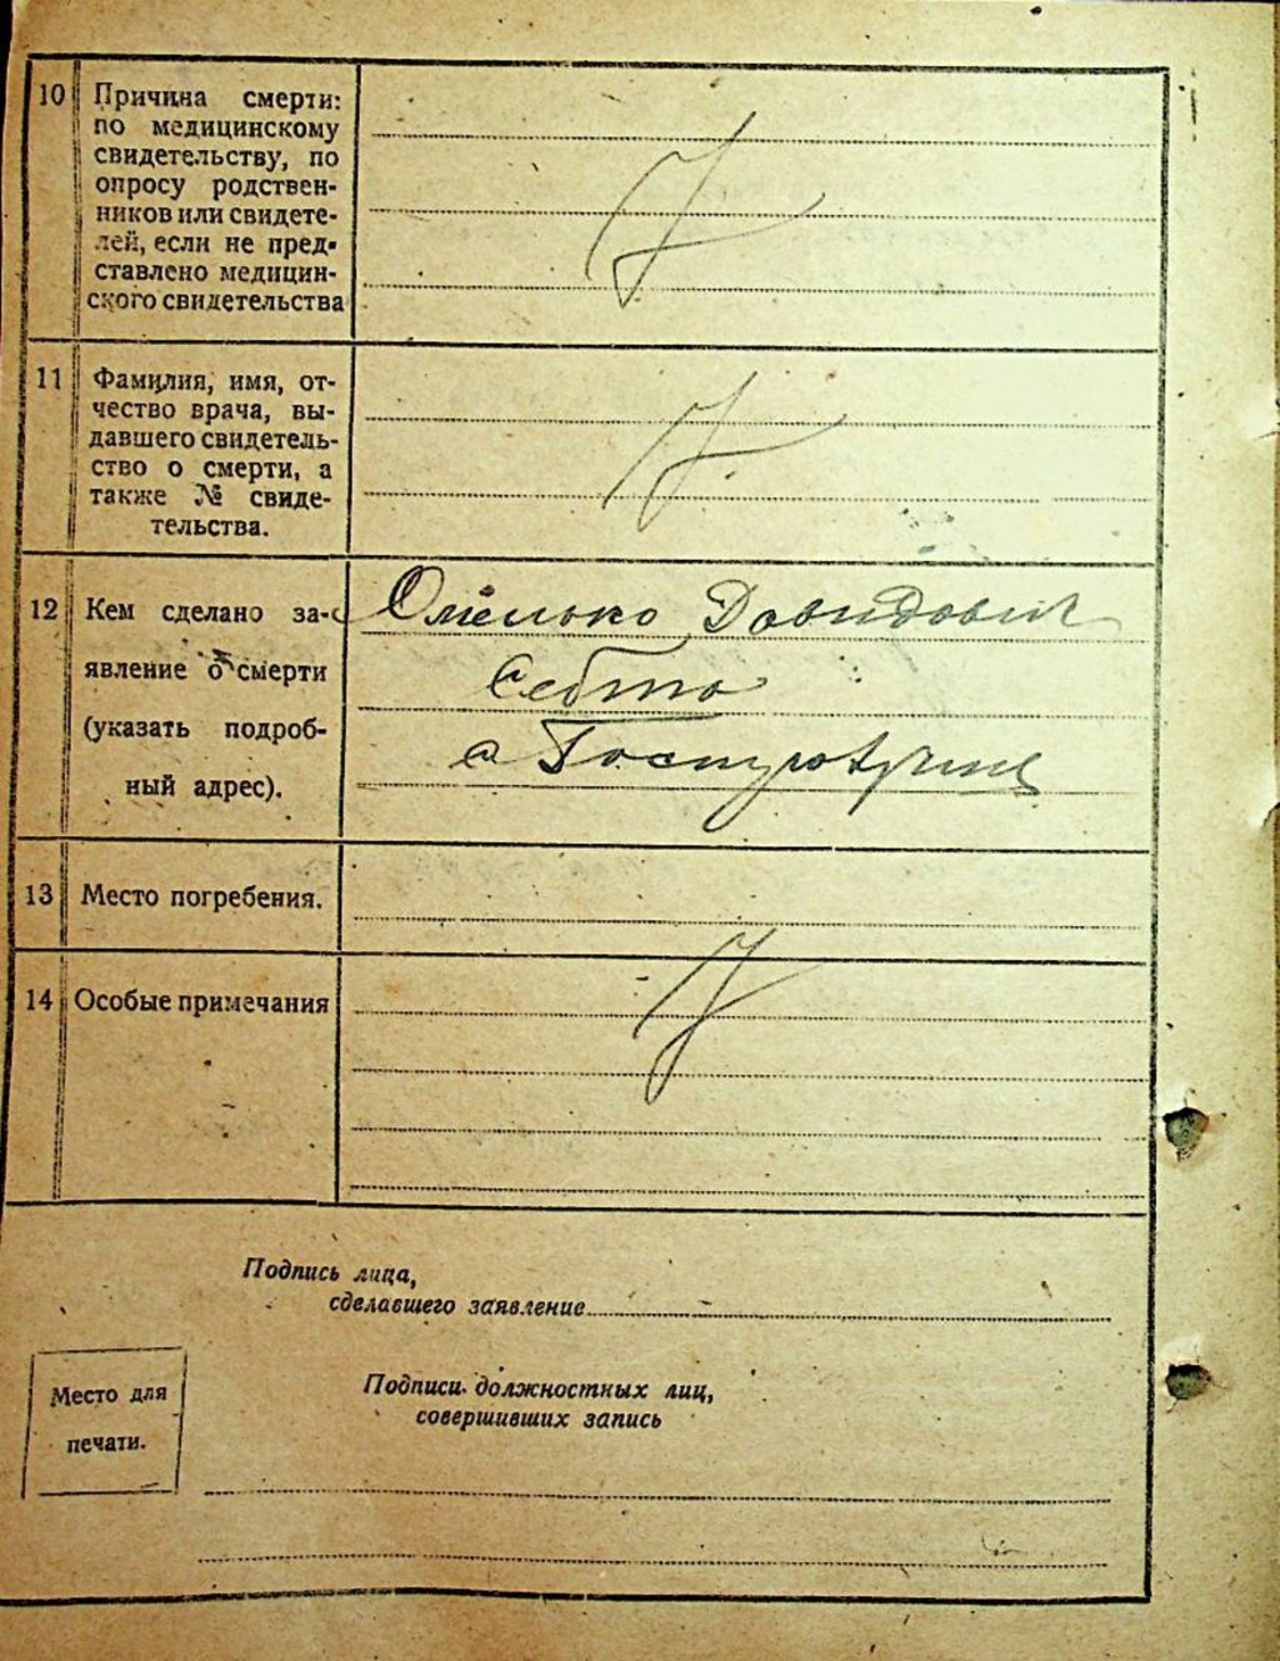 10 Причина смерти:
по медицинскому
свидетельству, по
опросу родствен-
ников или свидете-
лей, если не пред-
ставлено медицин-
ского свидетельства
11 Фамилия, имя, от-
чество врача, вы-
давшего свидетель-
ство о смерти, а
также № свиде-
тельства.
12 Кем сделано за-
явление о смерти
(указать подроб-
ный адрес).
Омелько Давидович
13 Место погребения.
14 Особые примечания
Подпись лица,
сделавшего заявление
Место для
печати.
Подписи должностных лиц,
совершивших запись